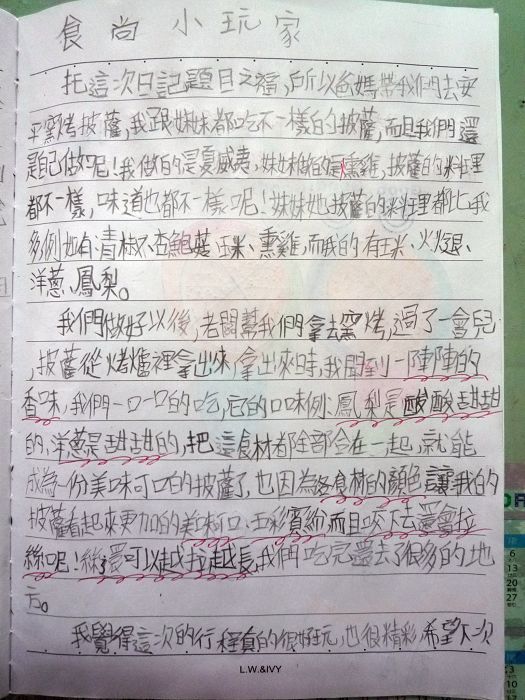 食尚小玩家
托這次日記題目之福,所以爸媽帶我們去安
平窯烤披薩,我跟妹妹都吃不一樣的披薩,而且我們還
是自己做呢!我做的是夏威夷,妹妹做的是燻雞,披薩的料理
都不一樣,味道也都不一樣呢!妹妹她披薩的料理都比我
多例如有:青椒、杏鮑菇、玉米、熏雞,而我的有玉米、火腿、
洋蔥、鳳梨。
我們做好以後,老闆幫我們拿去窯烤,過了一會兒
,披薩從烤爐裡拿出來,拿出來時,我聞到一陣陣的
香味,我們一口一口的吃,它的口味例:鳳梨是酸酸甜甜
的,洋蔥是甜甜的,把這食材都全部合在一起,就能
成為一份美味可口的披薩了,也因為各食材的顏色讓我的
披薩看起來更加的美味可口、五彩繽紛,而且咬下去還會拉
絲呢!絲還可以越拉越長,我們吃完還去了很多的地
方。
我覺得這次的行程真的很好玩,也很精彩希望下次
L.W.&IVY
6
13
20
27
3
10